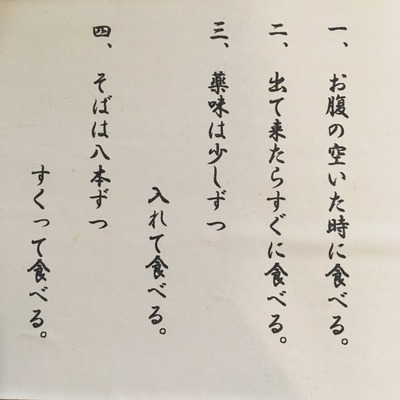 一、お腹の空いた時に食べる。
二、出て来たらすぐに食べる。
三、薬味は少しずつ
入れて食べる。
四、そばは八本ずつ
すくって食べる。